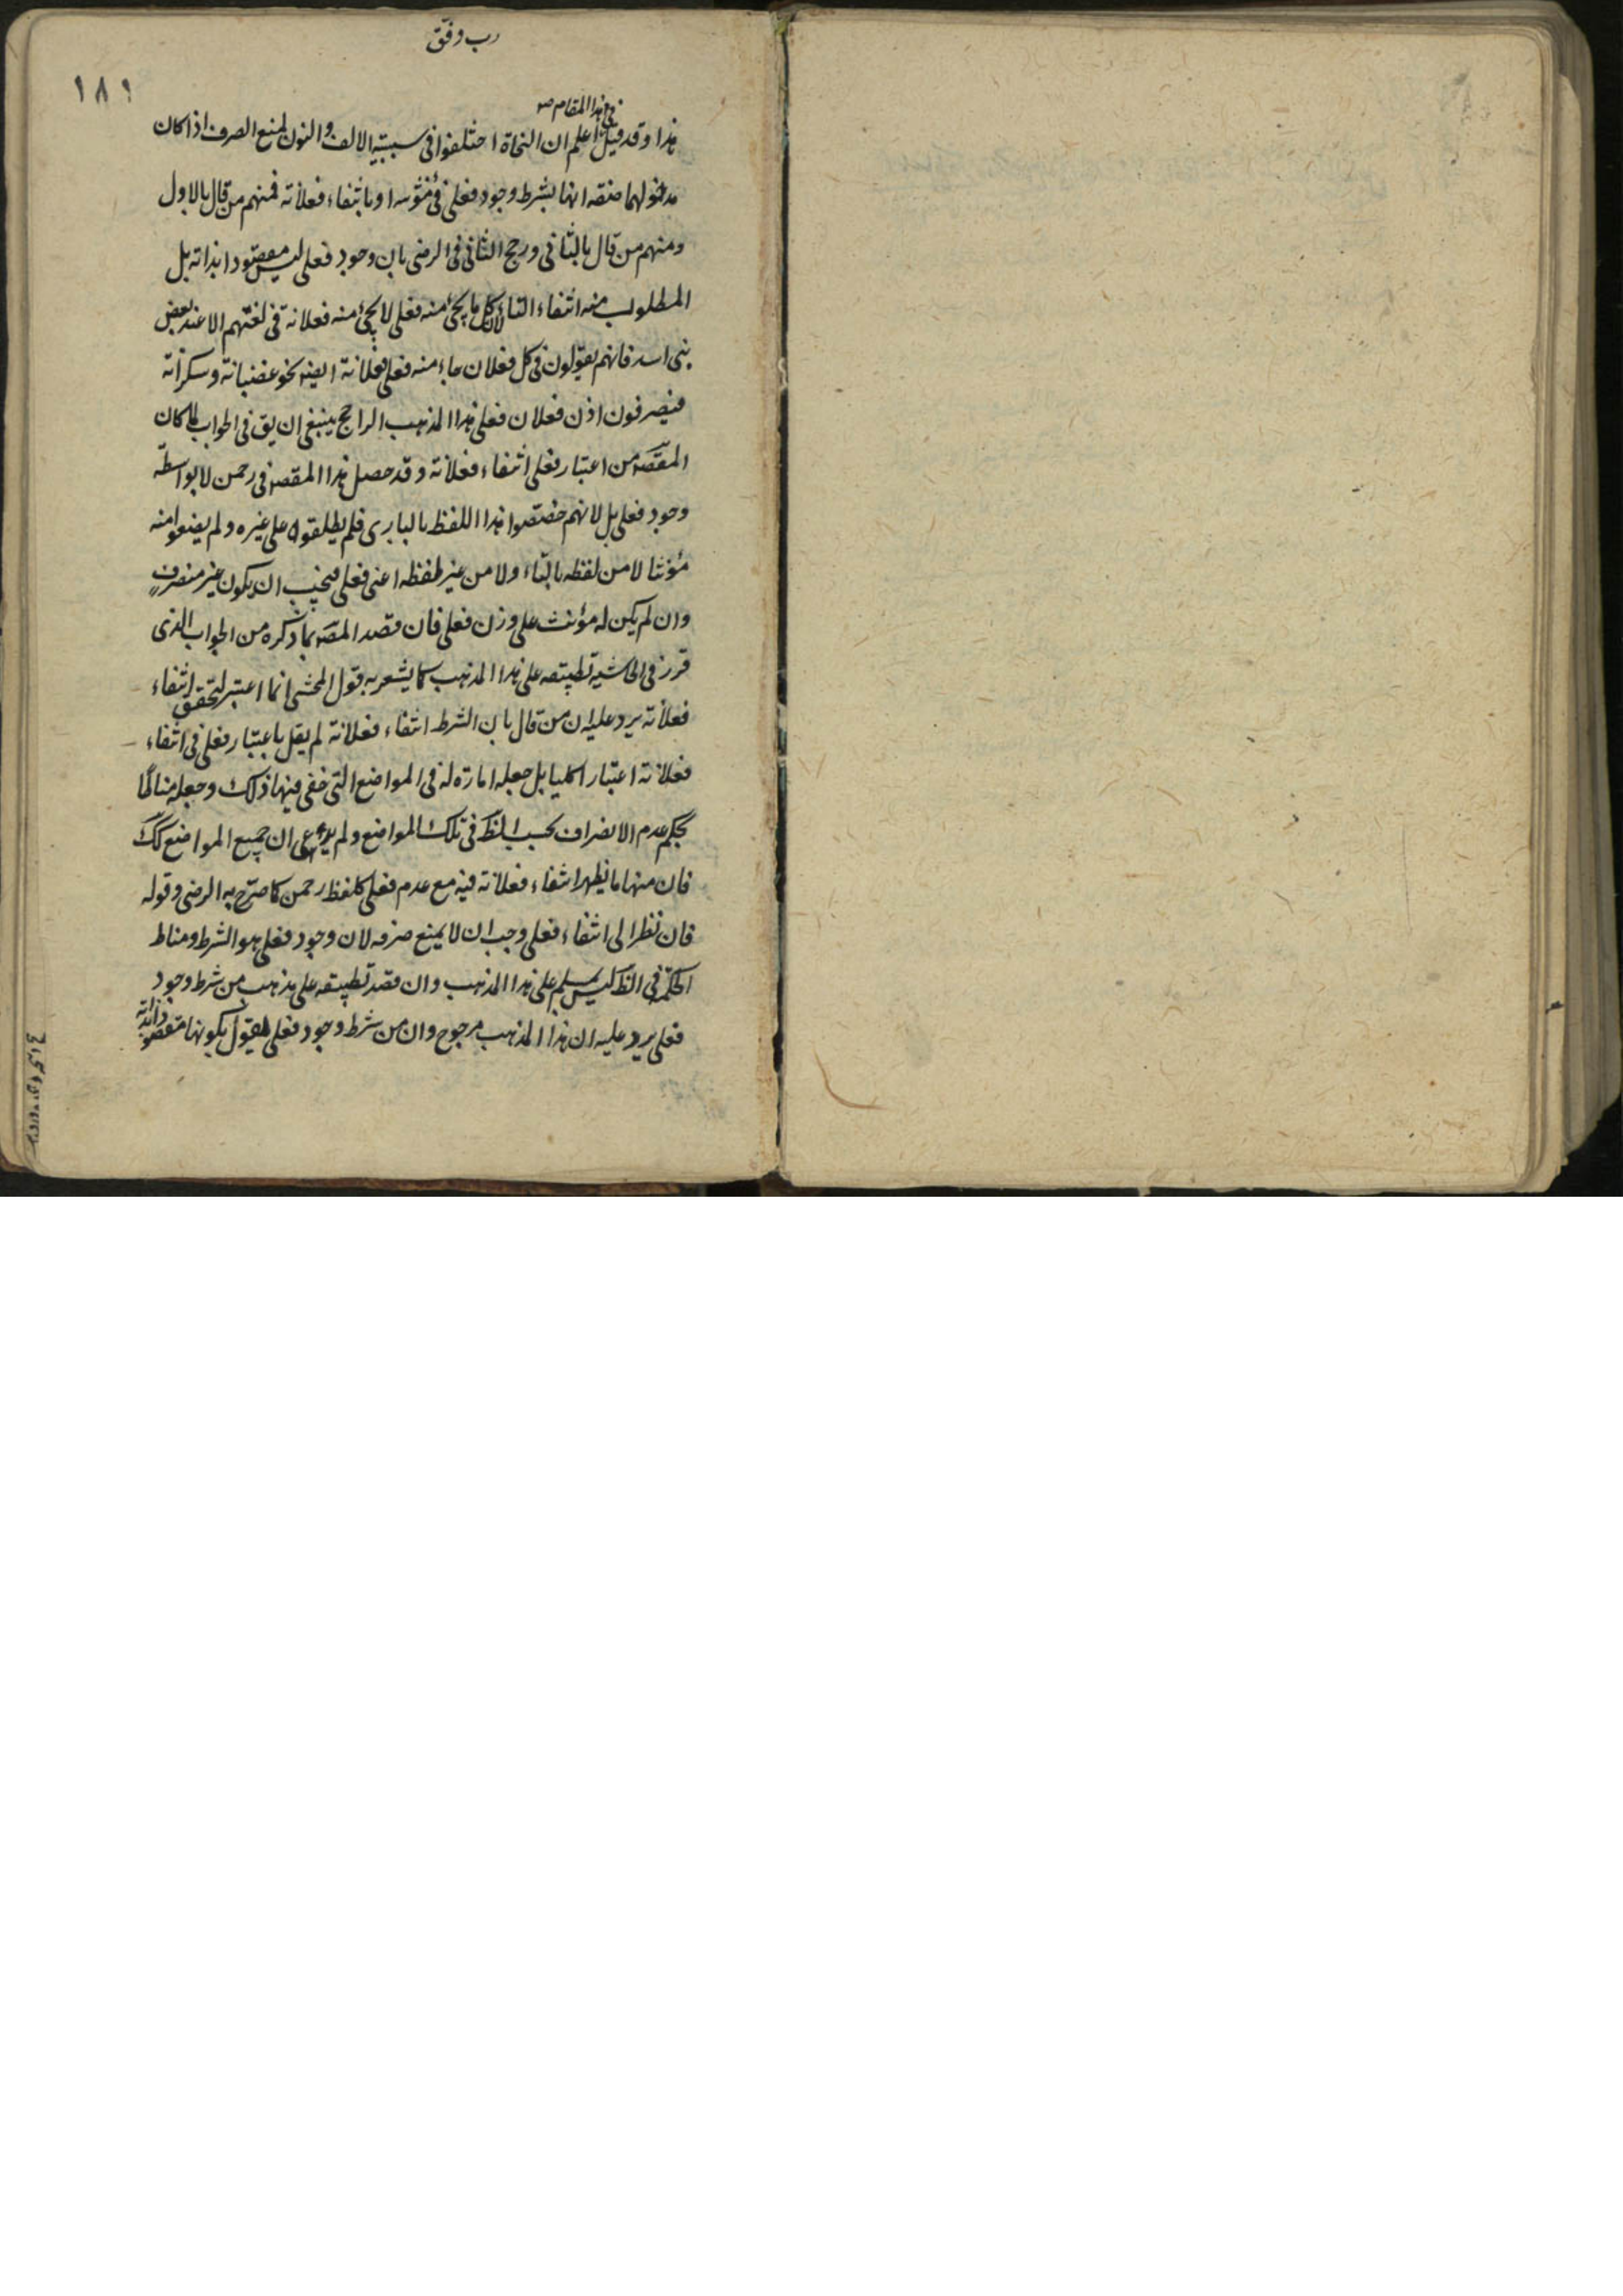 رب وفق
١٨١
في هذا المقام صه
هذا وقد قيل اعلم ان النحاة اختلفوا في سببية الالف والنون لمنع الصرف اذا كان
مدخولهما صفة انها بشرط وجود فعلى في مؤنثه او بانتفاء فعلانة فمنهم من قال بالاول
ومنهم من قال بالثاني ورجح الثاني في الرضى بان وجود فعلى ليس مقصودا بذاته بل
المطلوب منه انتفاء التاء لان كل ما يجئ منه فعلى لا يجئ منه فعلانة في لغتهم الا عند بعض
بنى اسد فانهم يقولون في كل فعلان جاء منه فعلى فعلانة ايضه نحو غضبانة وسكرانة
فيصرفون اذن فعلان فعلى هذا المذهب الراجح ينبغي ان يق في الجواب لما كان
المقصه من اعتبار فعلى انتفاء فعلانة وقد حصل هذا المقصه في رحمن لا بواسطة
وجود فعلى بل لانهم خصصوا هذا اللفظ بالبارى فلم يطلقوه على غيره ولم يضعوا منه
مؤنثا لا من لفظه بالتاء ولا من غير لفظه اعنى فعلى فيجب ان يكون غير منصرف
وان لم يكن له مؤنث على وزن فعلى فان قصد المصه بما ذكره من الجواب الذى
قرر في الحاشية تطبيقه على هذا المذهب كما يشعر به قول المحشى انما اعتبر لتحقق انتفاء
فعلانة يرد عليه ان من قال بان الشرط انتفاء فعلانة لم يقل باعتبار فعلى في انتفاء
فعلانة اعتبارا كليا بل جعله امارة له في المواضع التى خفى فيها ذلك وجعله مناطا
بحكم عدم الانصراف بحسب الظ في تلك المواضع ولم يدع ان جميع المواضع كك
فان منها ما يظهر انتفاء فعلانة فيه مع عدم فعلى كلفظ رحمن كما صرح به الرضى وقوله
فان نظرا الى انتفاء فعلى وجب ان لا يمنع صرفه لان وجود فعلى هو الشرط ومناط
الحكم في الظ ليس بمسلم على هذا المذهب وان قصد تطبيقه على مذهب من شرط وجود
فعلى يرد عليه ان هذا المذهب مرجوح وان من شرط وجود فعلى يقول بكونها مقصودة